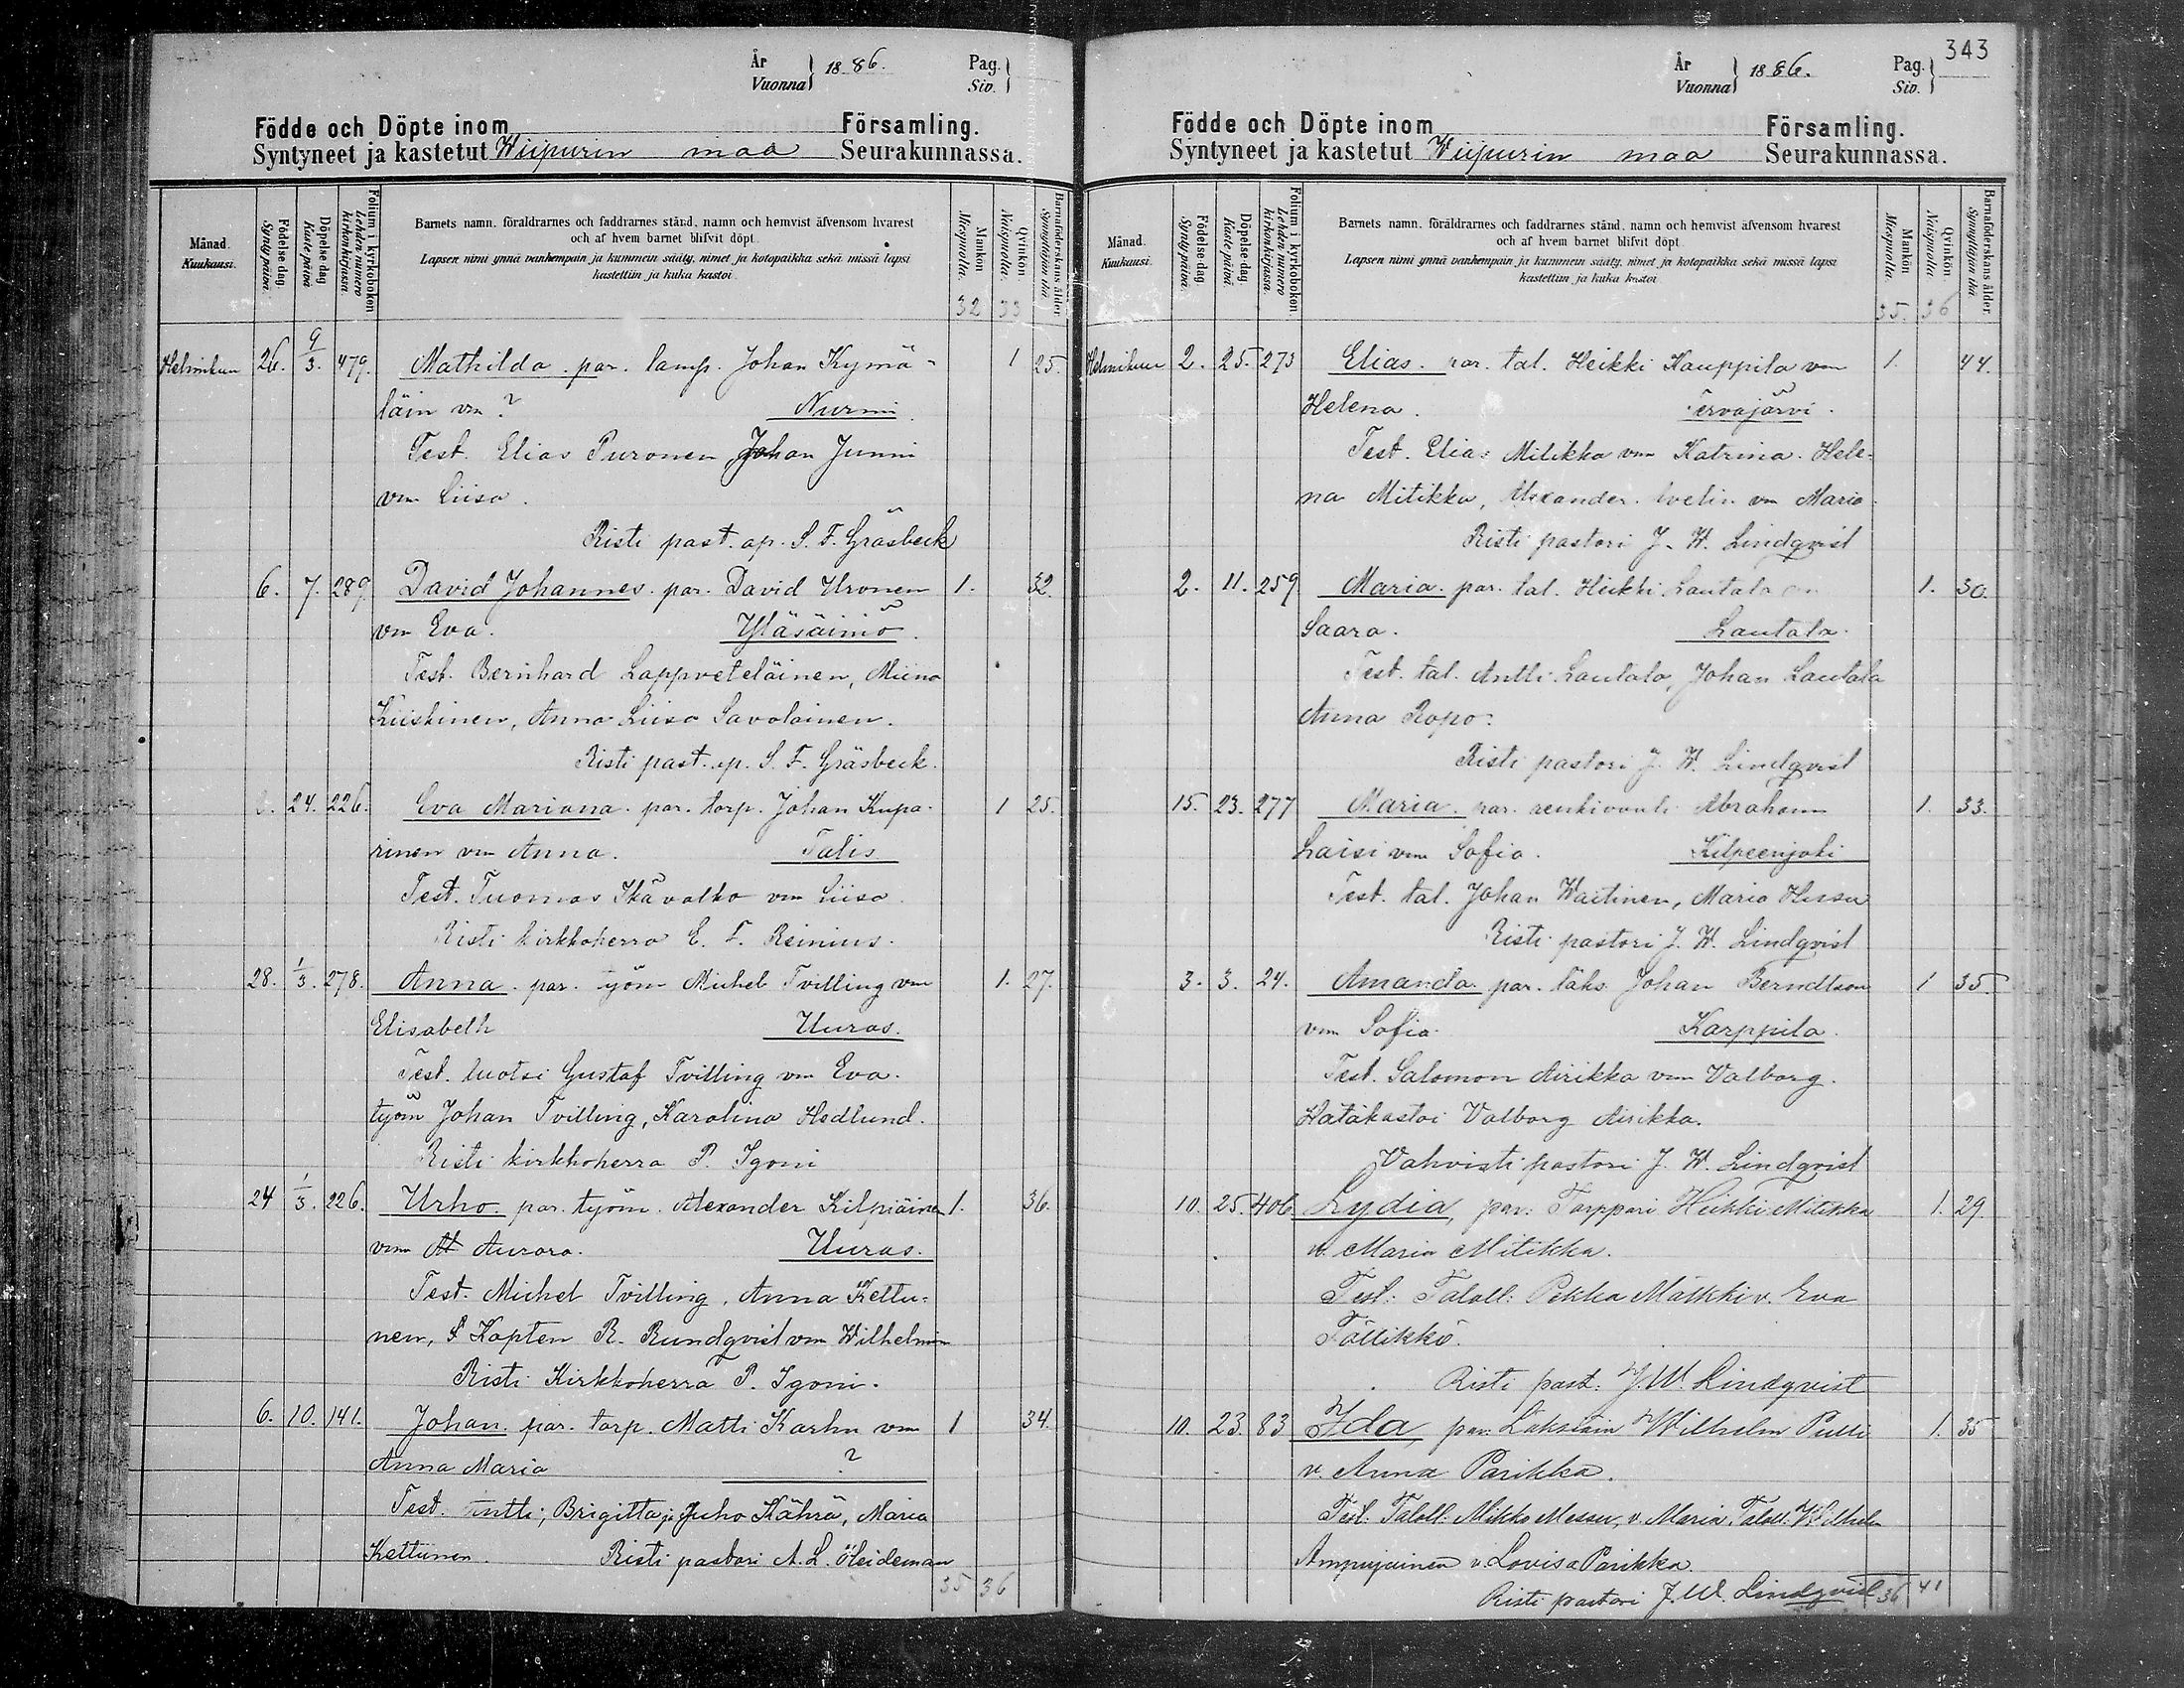 År
Vuonna } 1886.
Pag.
Siv. }
Födde och Döpte inom Församling.
Syntyneet ja kastetut Wiipurin maa Seurakunnassa.
Månad.
Kuukausi.
Födelse-dag
Syntypäivä.
Döpelse-dag
Kastepäivä
Folium i kyrkoboken
Lehden numero kirkonkirjassa.
Barnets namn, föräldrarnes och faddrarnes stånd, namn och hemvist äfvensom hvarest
och af hvem barnet blifvit döpt.
Lapsen nimi ynnä vanhempain ja kummein sääty, nimet ja kotopaikka sekä missä lapsi
kastettiin ja kuka kastoi.
Mankön
Miespuolia.
Qvinkön
Naispuolia.
Barnaföderskans ålder
Synnyttäjän ikä
32 33
Helmikuu 26. 9/3. 479. Mathilda. par. lamp. Johan Kymä- 1 25.
läin vm ? Nurmi
Test. Elias Puronen, Johan Junni
vm Liisa.
Risti past. ap. S. F. Gräsbeck
6. 7. 289. David Johannes. par. David Uronen 1. 32.
vm Eva. Yläsäiniö.
Test. Bernhard Lappveteläinen, Miina
Kiiskinen, Anna Liisa Savolainen.
Risti past. ap. S. F. Gräsbeck.
24. 226. Eva Mariana. par. torp. Johan Kupa- 1 25.
rinen vm Anna. Talis
Test. Tuomas Ikävalko vm Liisa
Risti kirkkoherra E. F. Reinius.
28. 1/3. 278. Anna. par. työm Michel Tvilling vm 1. 27.
Elisabeth Uuras.
Test. luotsi Gustaf Tvilling vm Eva.
työm Johan Tvilling, Karolina Hedlund.
Risti kirkkoherra P. Igoni
24 1/3. 226. Urho. par. työm. Alexander Kilpiäinen 1. 36.
vm Aurora. Uuras.
Test. Michel Tvilling, Anna Kettu-
nen, Kapten R. Rundqvist vm Wilhelmin
Risti Kirkkoherra P. Igoni.
6. 10. 141. Johan. par. torp. Matti Karhu vm 1 34.
Anna Maria ?
Test. Antti, Brigitta ja Juho Kähra, Maria
Kettunen. Risti pastori A. L. Heideman
35 36
343
År
Vuonna } 1886.
Pag.
Siv. }
Födde och Döpte inom Församling.
Syntyneet ja kastetut Wiipurin maa Seurakunnassa.
Månad.
Kuukausi.
Födelse-dag
Syntypäivä.
Döpelse-dag
Kastepäivä.
Folium i kyrkoboken.
Lehden numero kirkonkirjassa.
Barnets namn, föräldrarnes och faddrarnes stånd, namn och hemvist äfvensom hvarest
och af hvem barnet blifvit döpt.
Lapsen nimi ynnä vanhempain ja kummein sääty, nimet ja kotopaikka sekä missä lapsi
kastettiin ja kuka kastoi
Mankön
Miespuolia.
Qvinkön
Naispuolia.
Barnaföderskans ålder.
Synnyttäjän ikä
35. 36
Helmikuu 2. 25. 273 Elias. par. tal. Heikki Kauppila vm 1. 44.
Helena. Tervajärvi.
Test. Elias Mitikka vm Katrina. Hele-
na Mitikka, Alexander vm Maria
Risti pastori J. W. Lindqvist
2. 11. 259 Maria. par. tal. Heikki Lautala vm 1. 30.
Saara. Lautala.
Test. tal. Antti Lautala, Johan Lautala
Anna Ropo.
Risti pastori J. W. Lindqvist
15. 23. 277 Maria. par. renkivouti Abraham 1. 33.
Laisi vm Sofia. Kilpeenjoki
Test. tal. Johan Waitinen, Maria Hessu
Risti pastori J. W. Lindqvist
3. 3. 24. Amanda. par. läks. Johan Berndtson 1 35.
vm Sofia. Karppila.
Test. Salomon Airikka vm Valborg.
Hätäkastoi Valborg Airikka.
Vahvisti pastori J. W. Lindqvist
10. 25. 406. Lydia, par: Torppari Heikki Mitikka 1. 29.
v. Maria Mitikka.
Test: Taloll: Pekka Mätkki v. Eva
Töllikkö.
Risti past: J. W. Lindqvist
10. 23. 83 Ida, par: Läksiäin Wilhelm Pulli 1. 35
v. Anna Parikka.
Test: Taloll: Mikko Messu, v. Maria, Taloll: Wilhelm
Ampujainen v. Lovisa Parikka.
Risti pastori J. W. Lindqvist 36 41